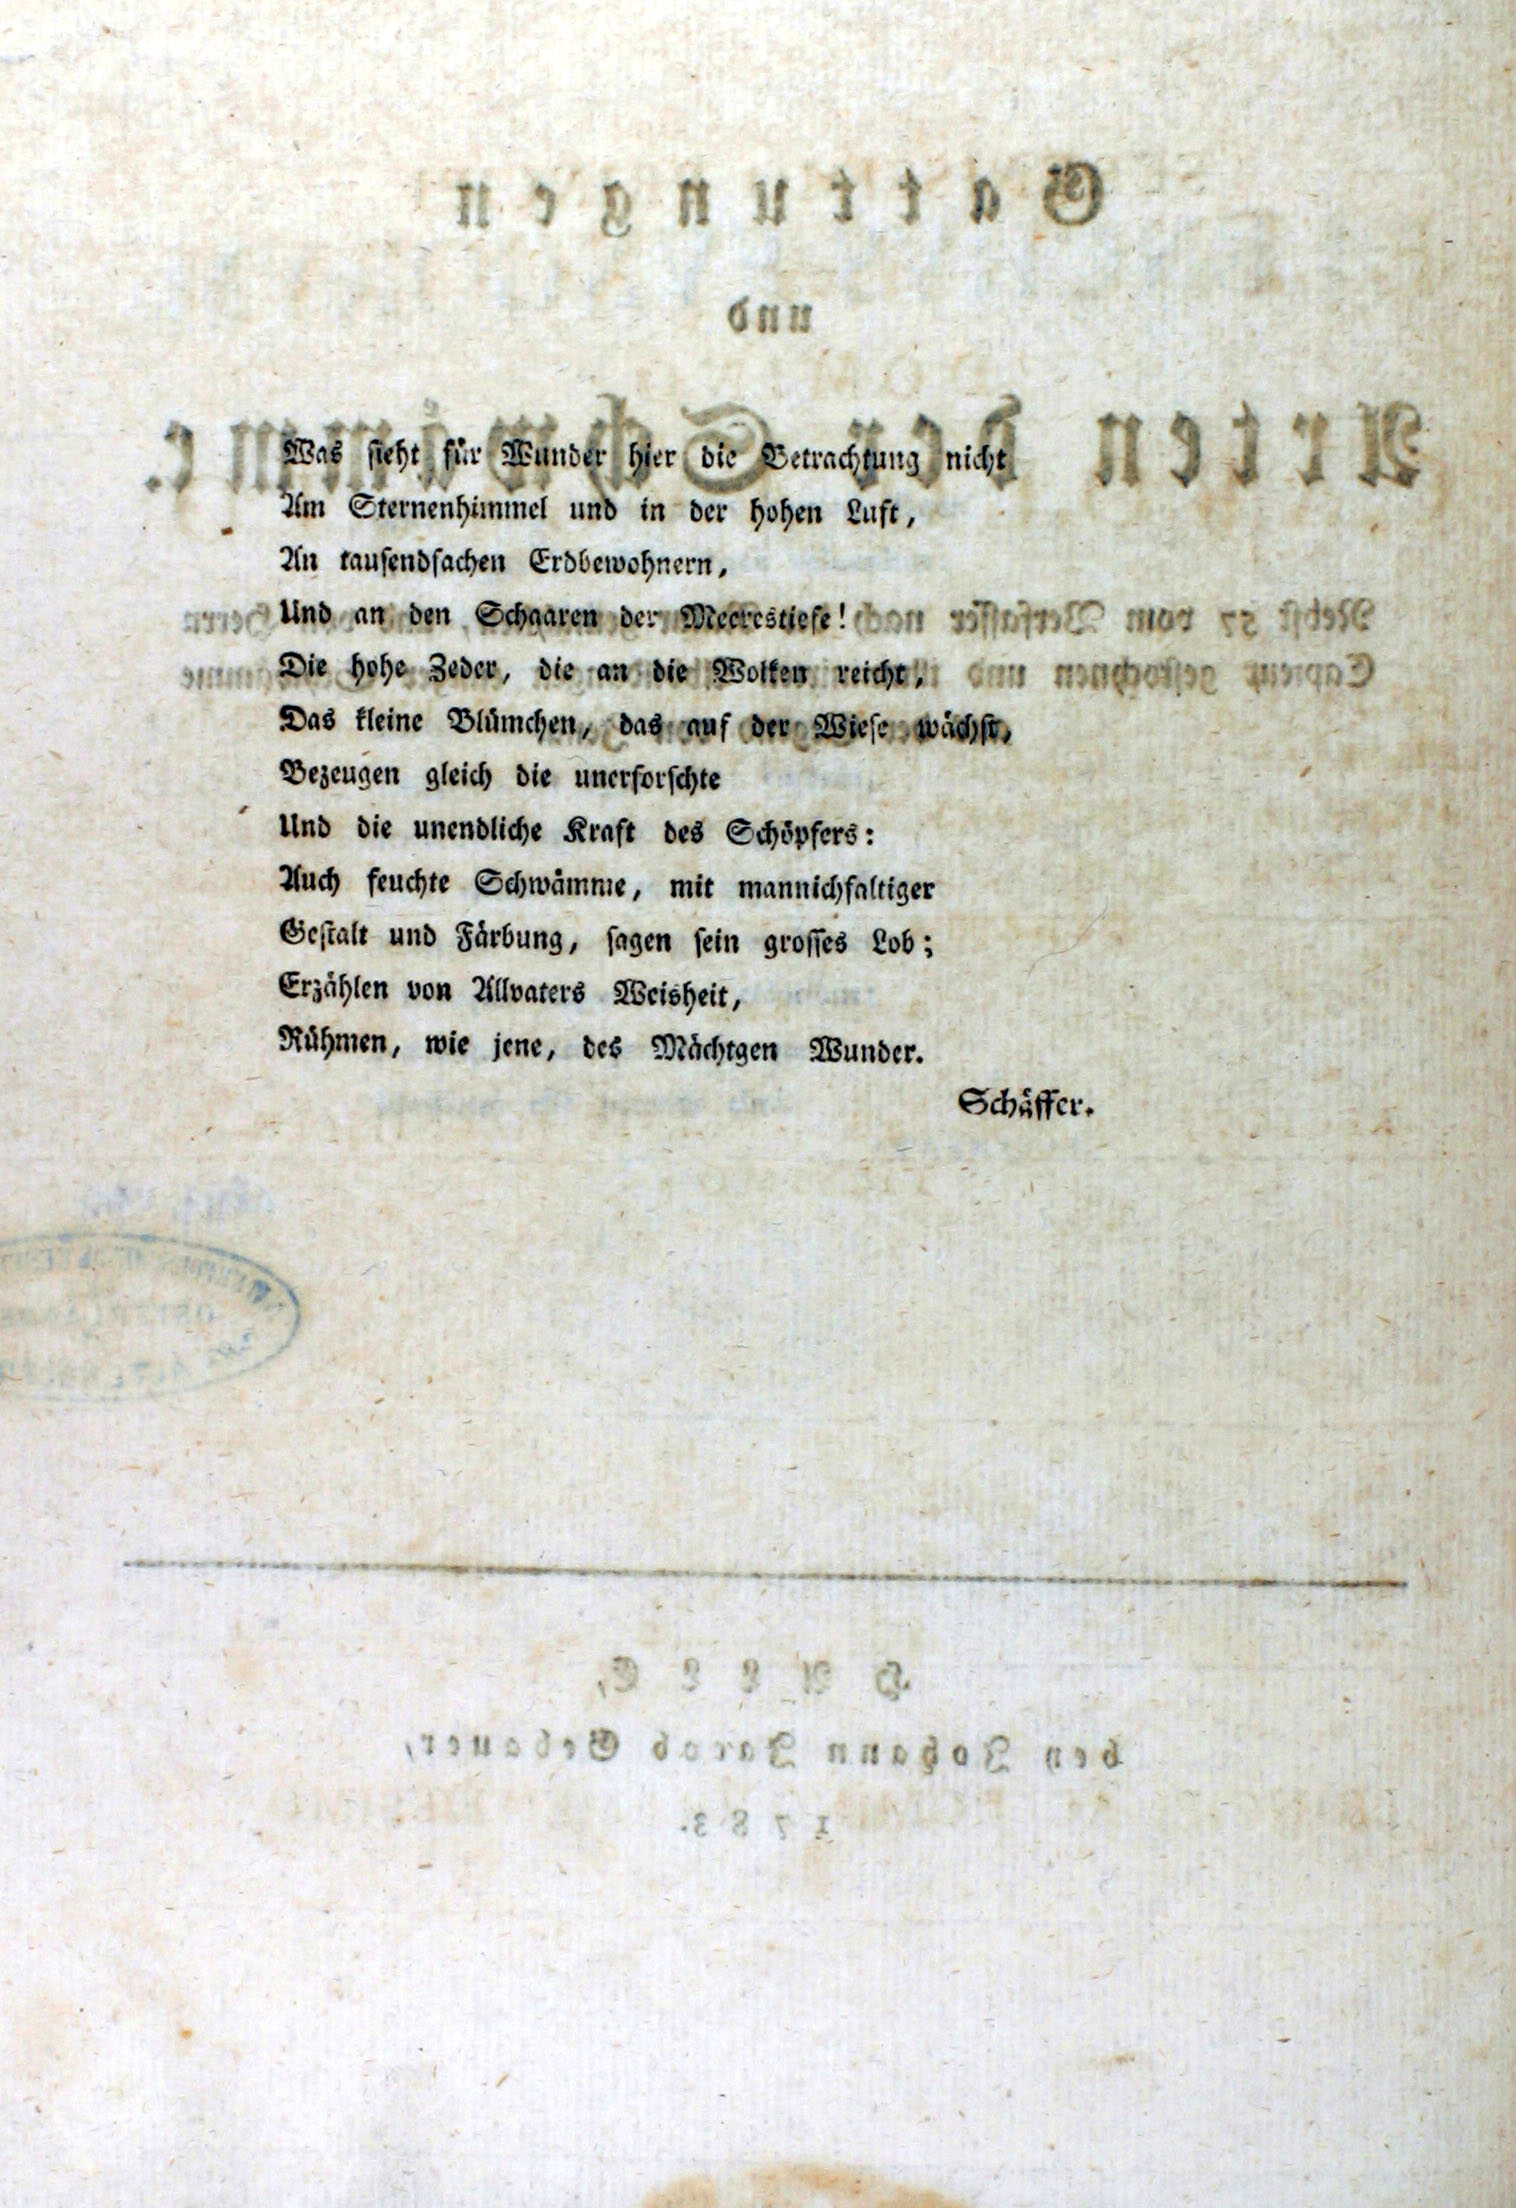 Was sieht für Wunder hier die Betrachtung nicht
Am Sternenhimmel und in der hohen Luft,
An tausendfachen Erdbewohnern,
Und an den Schaaren der Meerestiefe!
Die hohe Zeder, die an die Wolken reicht,
Das kleine Blümchen, das auf der Wiese wächst,
Bezeugen gleich die unerforschte
Und die unendliche Kraft des Schöpfers:
Auch feuchte Schwämme, mit mannichfaltiger
Gestalt und Färbung, sagen sein grosses Lob;
Erzählen von Allvaters Weisheit,
Rühmen, wie jene, des Mächtgen Wunder.
Schäffer.